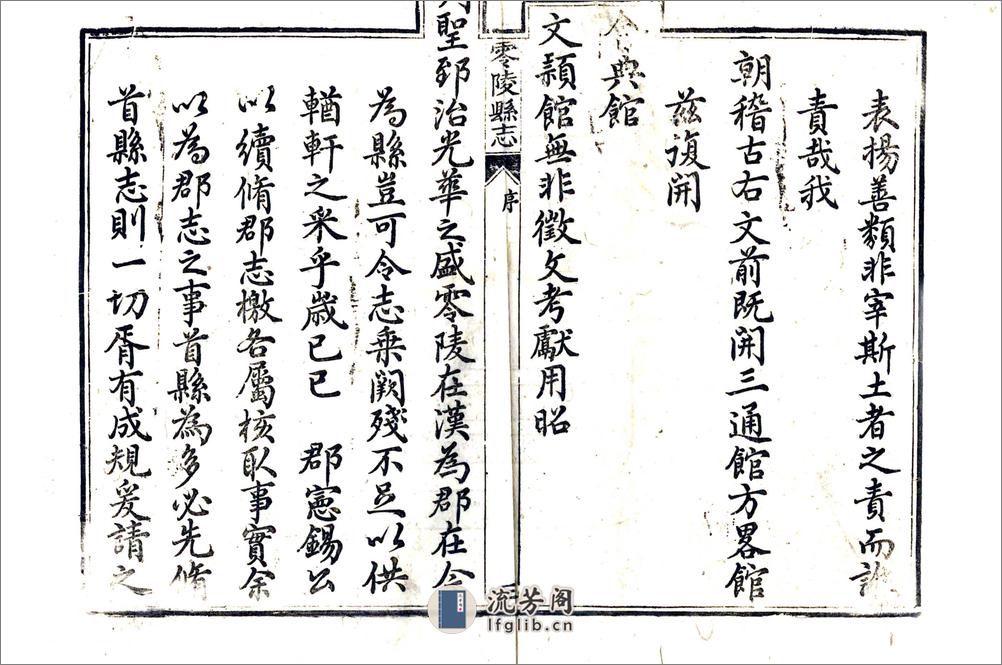 表揚善類非宰斯土者之責而誰
責哉我
朝稽古右文前既開三通館方畧館
茲復開
會典館
文穎館無非徵文考獻用昭
零陵縣志
序
聖郅治光華之盛零陵在漢為郡在今
為縣豈可令志乘闕殘不足以供
輶軒之采乎歲己巳 郡憲錫公
以續脩郡志檄各屬核取事實余
以為郡志之事首縣為多必先脩
首縣志則一切胥有成規爰請之
流芳阁
lfglib.cn